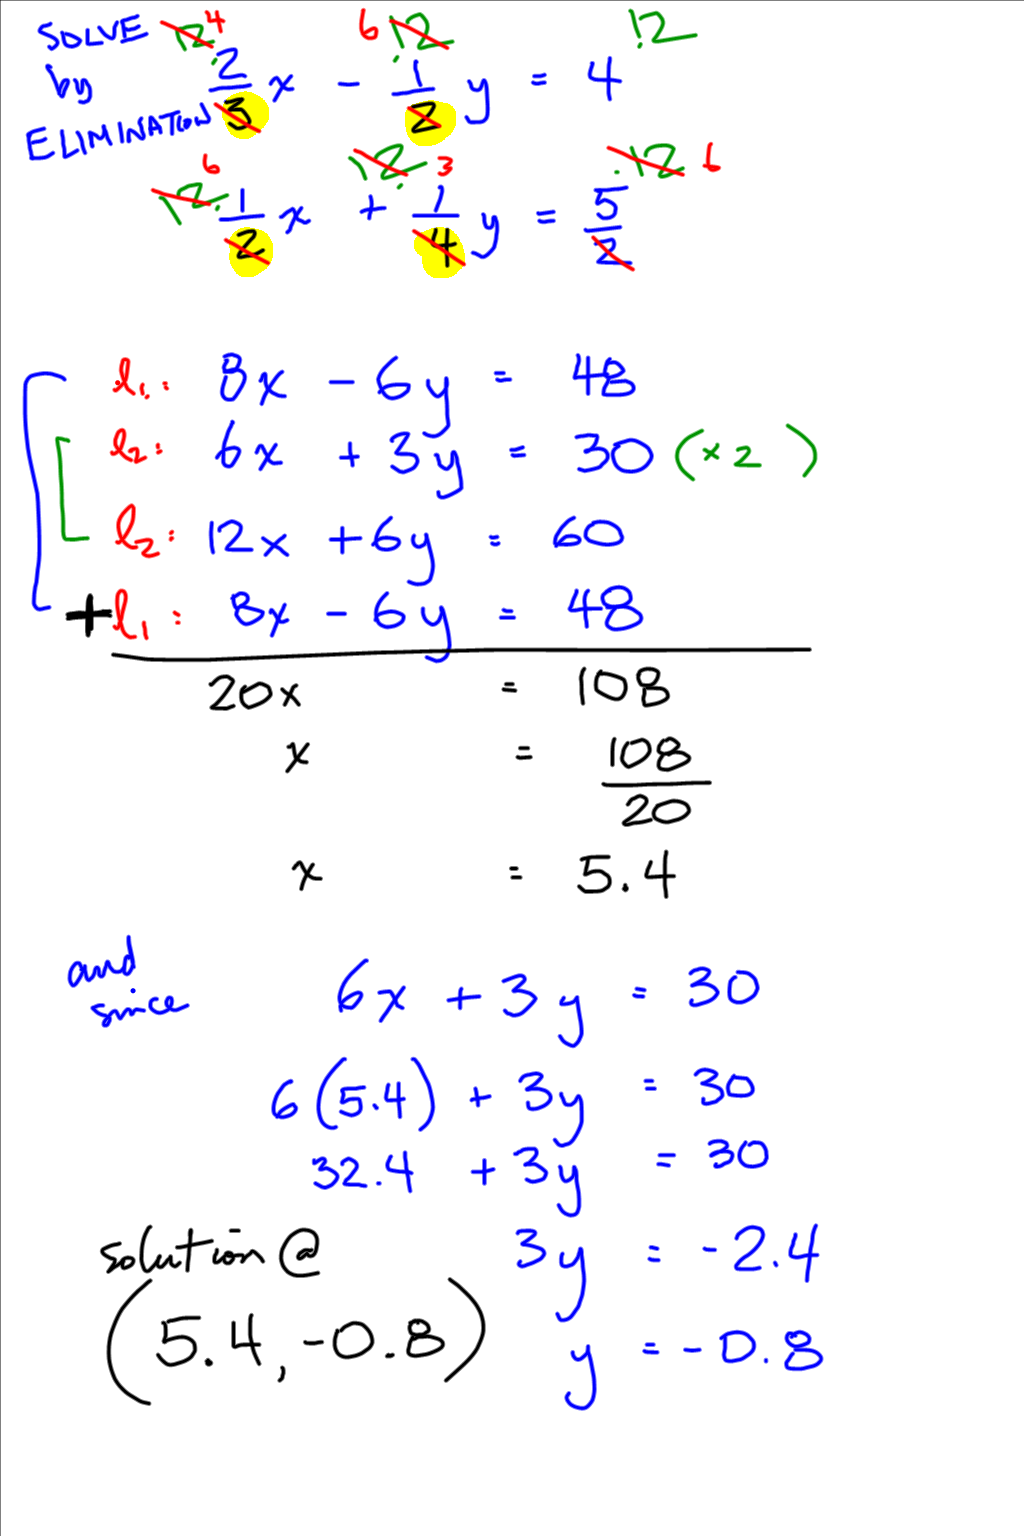 SOLVE 12 4 6 12 12
by 2/3 x - 1/2 y = 4
ELIMINATION
6 12 3 12 6
12 · 1/2 x + 1/4 y = 5/2
l₁: 8x - 6y = 48
l₂: 6x + 3y = 30 (× 2 )
l₂: 12x + 6y = 60
+ l₁: 8x - 6y = 48
20x = 108
x = 108/20
x = 5.4
and
since 6x + 3y = 30
6(5.4) + 3y = 30
32.4 + 3y = 30
solution @ 3y = -2.4
(5.4, -0.8) y = -0.8